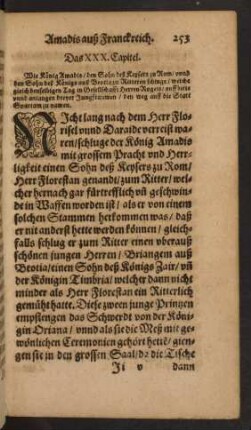 Amadis auß Franckreich. 253
Das XXX. Capitel.
Wie König Amadis / den Sohn deß Keysers zu Rom / vnnd
den Sohn deß Königs auß Brotia zu Rittern schluge / welche
gleich denselbigen Tag in Gesellschafft Herrn Rogels / auff bitte
vnnd anlangen dreyer Jungfrawen / den weg auff die Statt
zu namen.
NIcht lang nach dem Herr Flo-
risel vnnd Daraide verreist wa-
ren / schluge der König Amadis
mit grossem Pracht vnd Herr-
ligkeit einen Sohn deß Keysers zu Rom /
Herr Florestan genandt / zum Ritter / wel-
cher hernach gar fürtrefflich vñ geschwin-
de in Waffen worden ist / als er von einem
solchen Stammen herkommen was / daß
er nit anderst hette werden können / gleich-
falls schlug er zum Ritter einen vberauß
schönen jungen Herren / Briangem auß
Beotia / einen Sohn deß Königs Zair / vñ
der Königin Timbria / welcher dann nicht
minder als Herr Florestan ein Ritterlich
gemüht hatte. Diese zween junge Printzen
empfiengen das Schwerdt von der Köni-
gin Oriana / vnnd als sie die Meß mit ge-
wöhnlichen Ceremonien gehört hettē / gien-
gen sie in den grossen Saal / da die Tische
Ji v dann